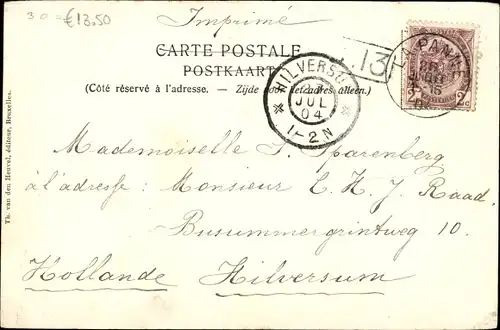 30 = €13.50
Imprimé
CARTE POSTALE
POSTKAART
(Côté réservé à l'adresse. — Zijde voor het adres alleen.)
13
LA PANNE
2 c 2 c
HILVERSUM
JUL
04
1-2 N
Mademoiselle S. Sparenberg
à l'adresse: Monsieur C. H. J. Raad.
Bussummergrintweg 10.
Hollande Hilversum
Th. van den Heuvel, éditeur, Bruxelles.